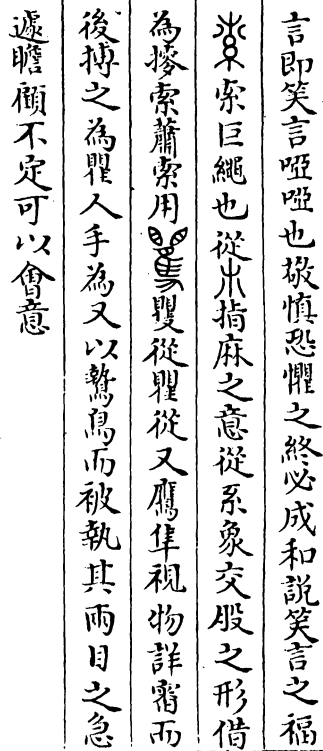 言即笑言啞啞也敬慎恐懼之終必成和說笑言之福
索巨繩也從朩指麻之意從系象交股之形借
為摉索蕭索用矍從瞿從又鷹隼視物詳審而
後搏之為瞿人手為又以鷙鳥而被執其兩目之急
遽瞻顧不定可以會意